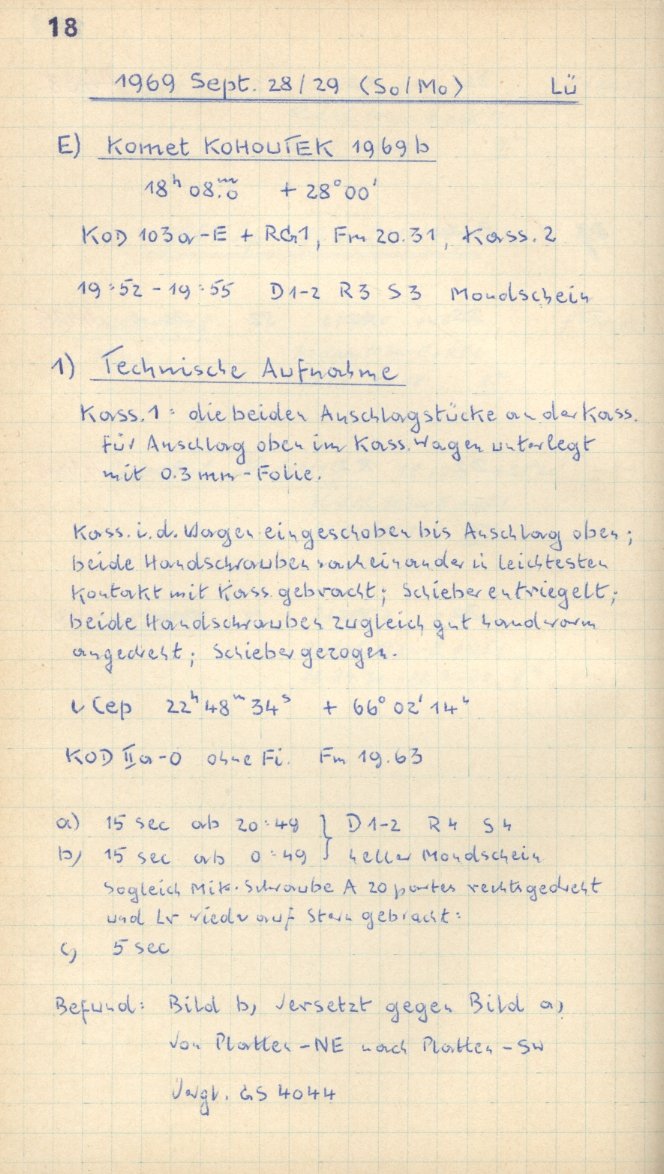 18
1969 Sept. 28/29 (So/Mo) Lü
E) Komet KOHOUTEK 1969b
18ʰ 08ᵐ.0 + 28°00'
KOD 103a-E + RG1, Fm 20.31, Kass. 2
19:52 - 19:55 D1-2 R3 S3 Mondschein
1) Technische Aufnahme
Kass. 1: die beiden Anschlagstücke an der Kass.
für Anschlag oben im Kass. Wagen unterlegt
mit 0.3 mm-Folie.
Kass. i. d. Wagen eingeschoben bis Anschlag oben;
beide Handschrauben nacheinander in leichtesten
Kontakt mit Kass. gebracht; Schieber entriegelt;
beide Handschrauben zugleich gut handwarm
angedreht; Schieber gezogen.
ι Cep 22ʰ 48ᵐ 34ˢ + 66° 02' 14"
KOD IIa-O ohne Fi. Fm 19.63
a) 15 sec ab 20:49 } D1-2 R4 S4
b) 15 sec ab 0:49 } heller Mondschein
Sogleich Mik.-Schraube A 20 partes rechtsgedreht
und Lr wieder auf Stern gebracht:
c) 5 sec
Befund: Bild b) versetzt gegen Bild a)
von Platten-NE nach Platten-SW
Vergl. GS 4044